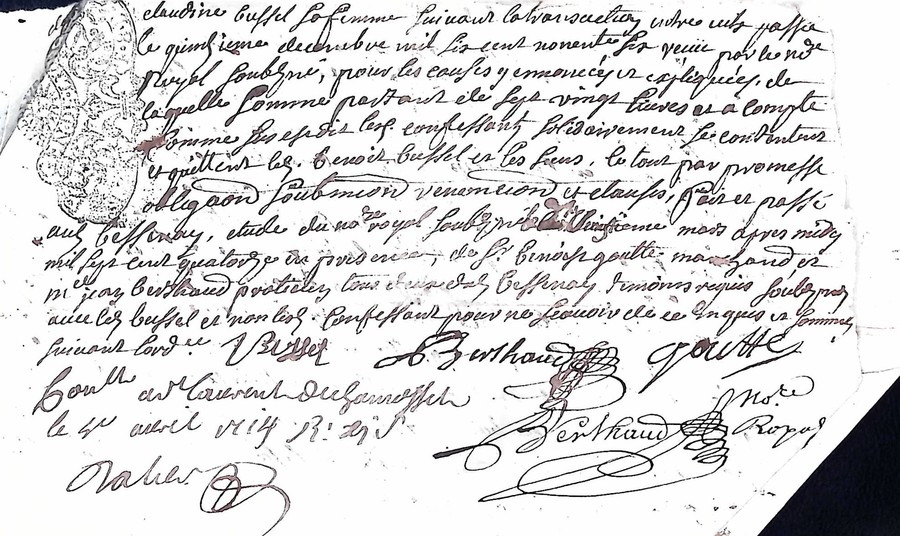 claudine bussel sa femme suivant la transaction entre eux passée
le quinzieme decembre mil six cent nonente six receüe par le no.re
Royal soubzné, pour les causes y ennoncées et expliquées, de
laquelle somme partant de sept vingt livres et a compte
comme sus est dit les confessant solidairement se contentent
et quittent led. benoit bussel et les siens, le tout par promesse
obligaon soubmission renonciaon et clauses, fait et passé
aud bessenay, etude du no.re royal soubzné le vingtieme mars apres midy
mil sept cent quatorze en presence, de Sr. benoist goutte marchand et
me jean berthaud praticien tous deux dud bessenay temoins requis soubznes
avec led bussel et non lesd. confessant pour ne scavoir de ce enquis et sommes
suivant lord.ce Bussel A Berthaud goutte
Con.lle a st laurent de chamosset
le 4e avril 1714 R.
Berthaud no.re Royal